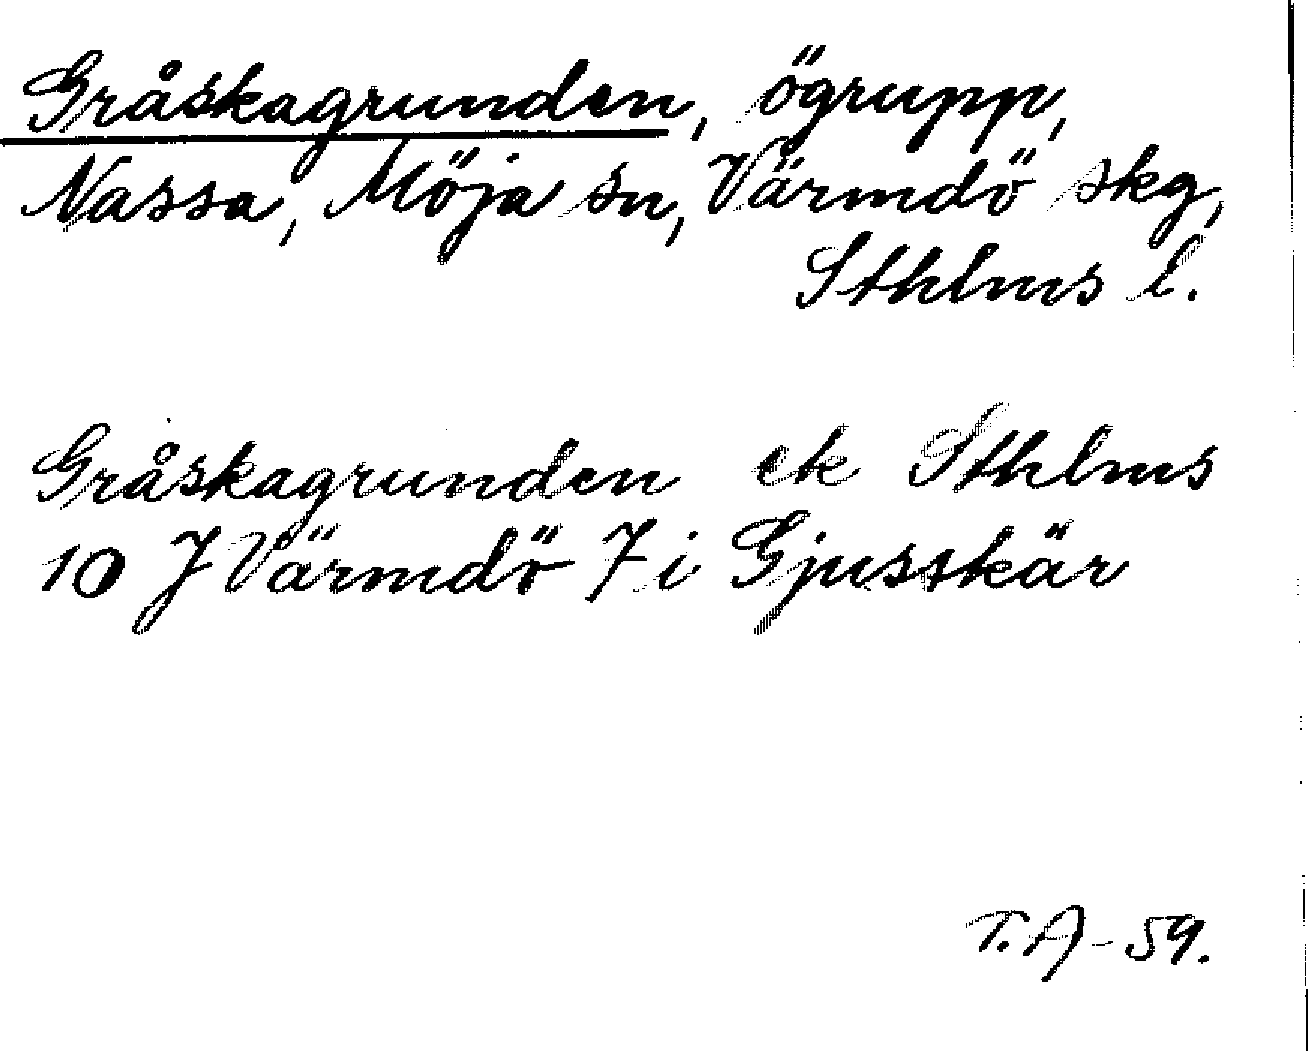 Gråskagrunden, ögrupp,
Nassa, Möja sn, Värmdö skg,
Sthlms l.
Gråskagrunden ek Sthlms
10 J Värmdö 7 i Gjusskär
T.A-59.